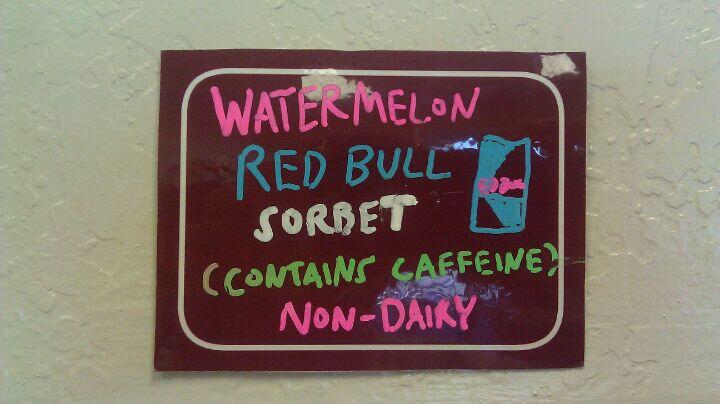 WATERMELON
RED BULL
SORBET
(CONTAINS CAFFEINE)
NON-DAIRY